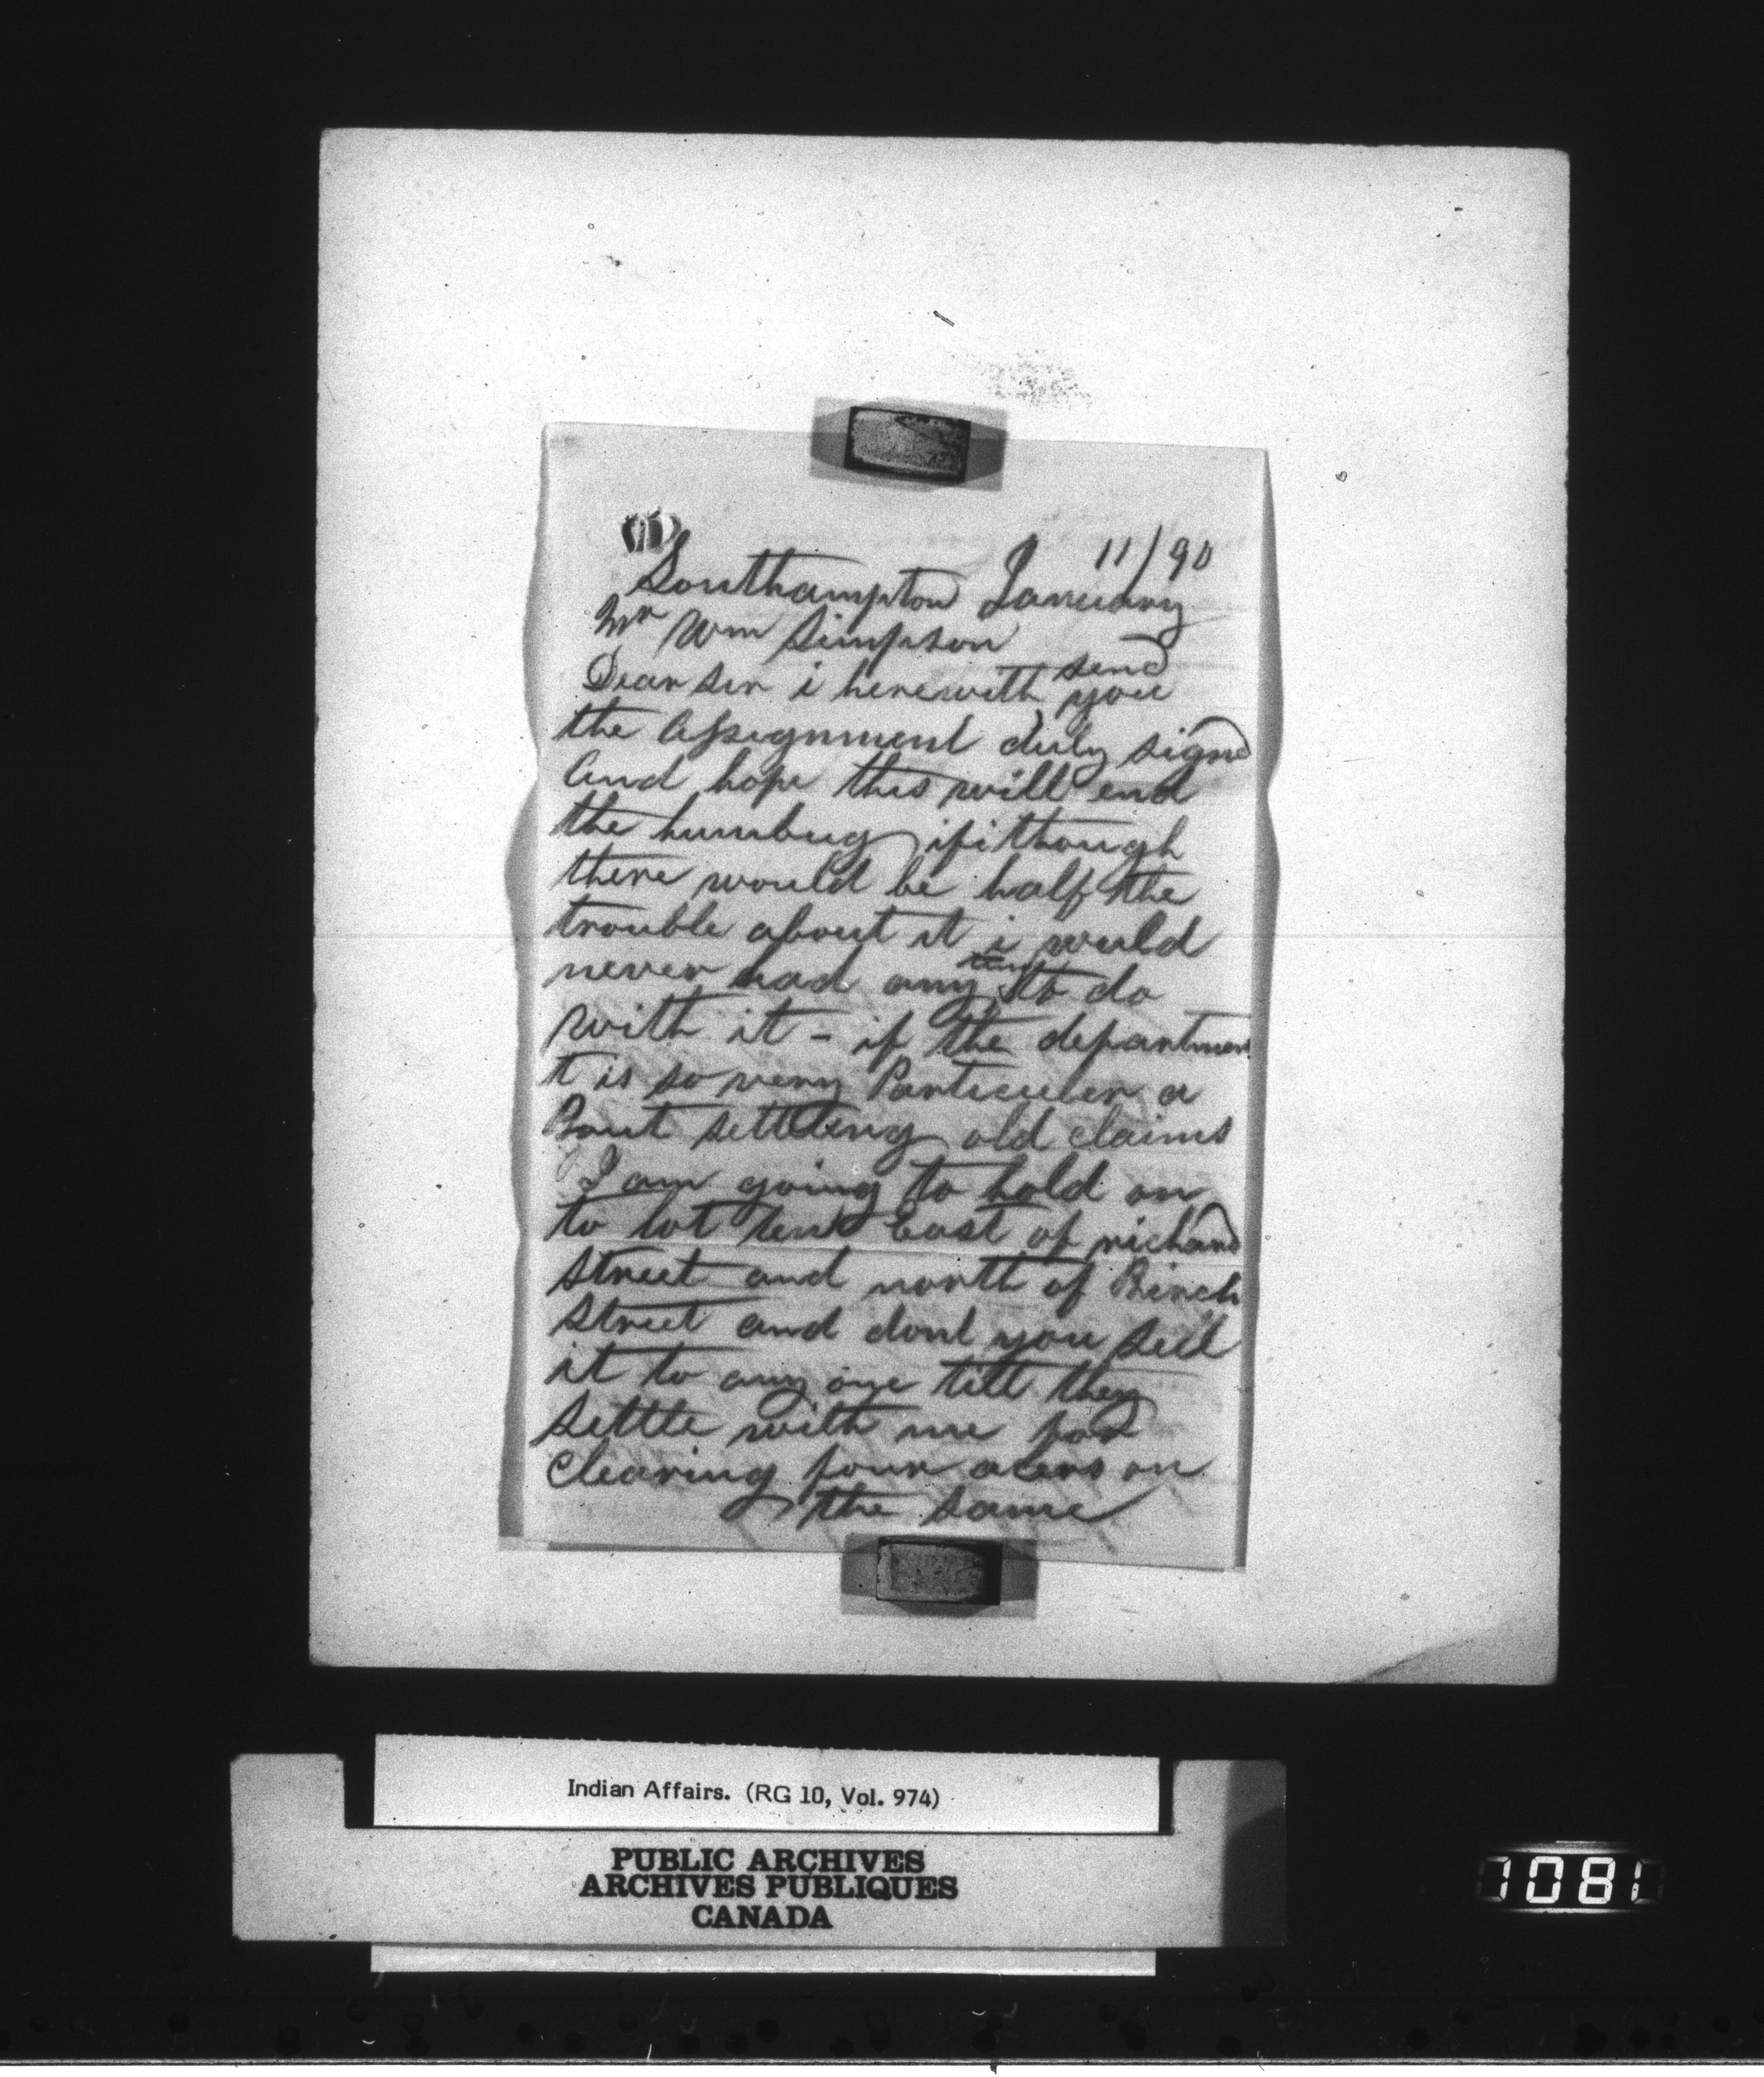 11/90
Southampton January
Mr Wm Simpson
send
Dear sir i herewith you
the Assignment duly signd
And hope this will end
the humbug if i though
there would be half the
trouble about it i would
never had any to do
with it - if the departmen
t is so very Particuler a
Bout settleing old claims
I am going to hold on
to lot ten East of richard
street and north of Birch
street and dont you sell
it to any one till they
settle with me for
Clearing four acers on
the same
Indian Affairs. (RG 10, Vol. 974)
PUBLIC ARCHIVES
ARCHIVES PUBLIQUES
CANADA
1081